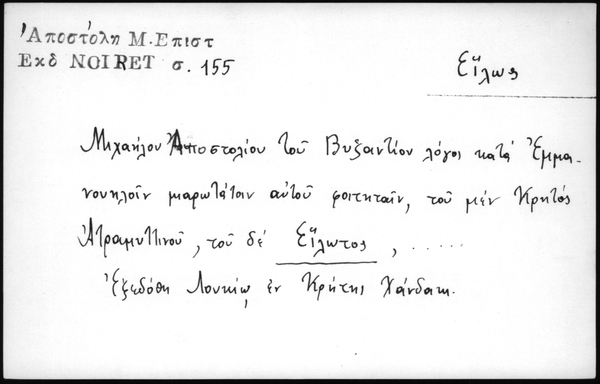 Ἀποστόλη Μ. Επιστ
Εκδ NOIRET σ. 155
Εἵλως
Μιχαήλου Ἀποστολίου τοῦ Βυζαντίου λόγοι κατά Ἐμμα-
νουηλοῖν μιαρωτάτοιν αὐτοῦ φοιτηταῖν, τοῦ μέν Κρητός
Ἀτραμυττινοῦ, τοῦ δέ Εἵλωτος, .....
Ἐξεδόθη Λουκίῳ, ἐν Κρήτης Χάνδακι.